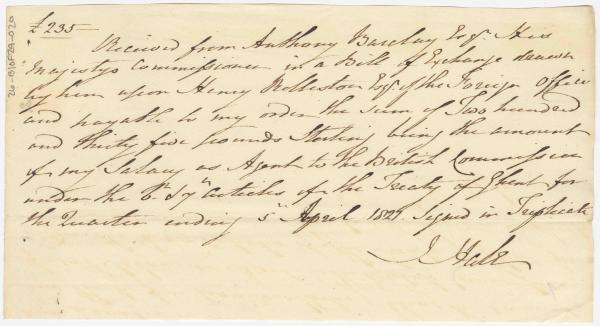 £235—
Received from Anthony Barclay Esqr. His
Majesty's Commissioner in a Bill of Exchange drawn
by him upon Henry Rolleston Esqr. of the Foreign Office
and payable to my order the sum of Two hundred
and thirty five pounds Sterling being the amount
of my Salary as Agent to the British Commission
under the 6th & 7th articles of the Treaty of Ghent for
the Quarter ending 5th April 1821. Signed in Triplicate
J Hale